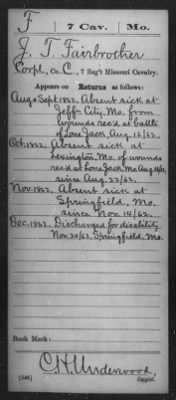 F 7 Cav. Mo.
J. T. Fairbrother
Corpl, Co. C, 7 Reg't Missouri Cavalry.
Appears on Returns as follows:
Aug & Sept. 1862. Absent sick at
Jeff. City, Mo. from
wounds rec'd at battle
of Lone Jack, Aug. 16/62.
Oct. 1862. Absent sick at
Lexington, Mo. of wounds
rec'd at Lone Jack, Mo. Aug 16/62,
since Aug. 22/62.
Nov. 1862. Absent sick at
Springfield, Mo.
since Nov. 14/62.
Dec. 1862. Discharged for disability
Nov. 20/62. Springfield, Mo.
Book Mark:
C. H. Underwood,
(546) Copyist.